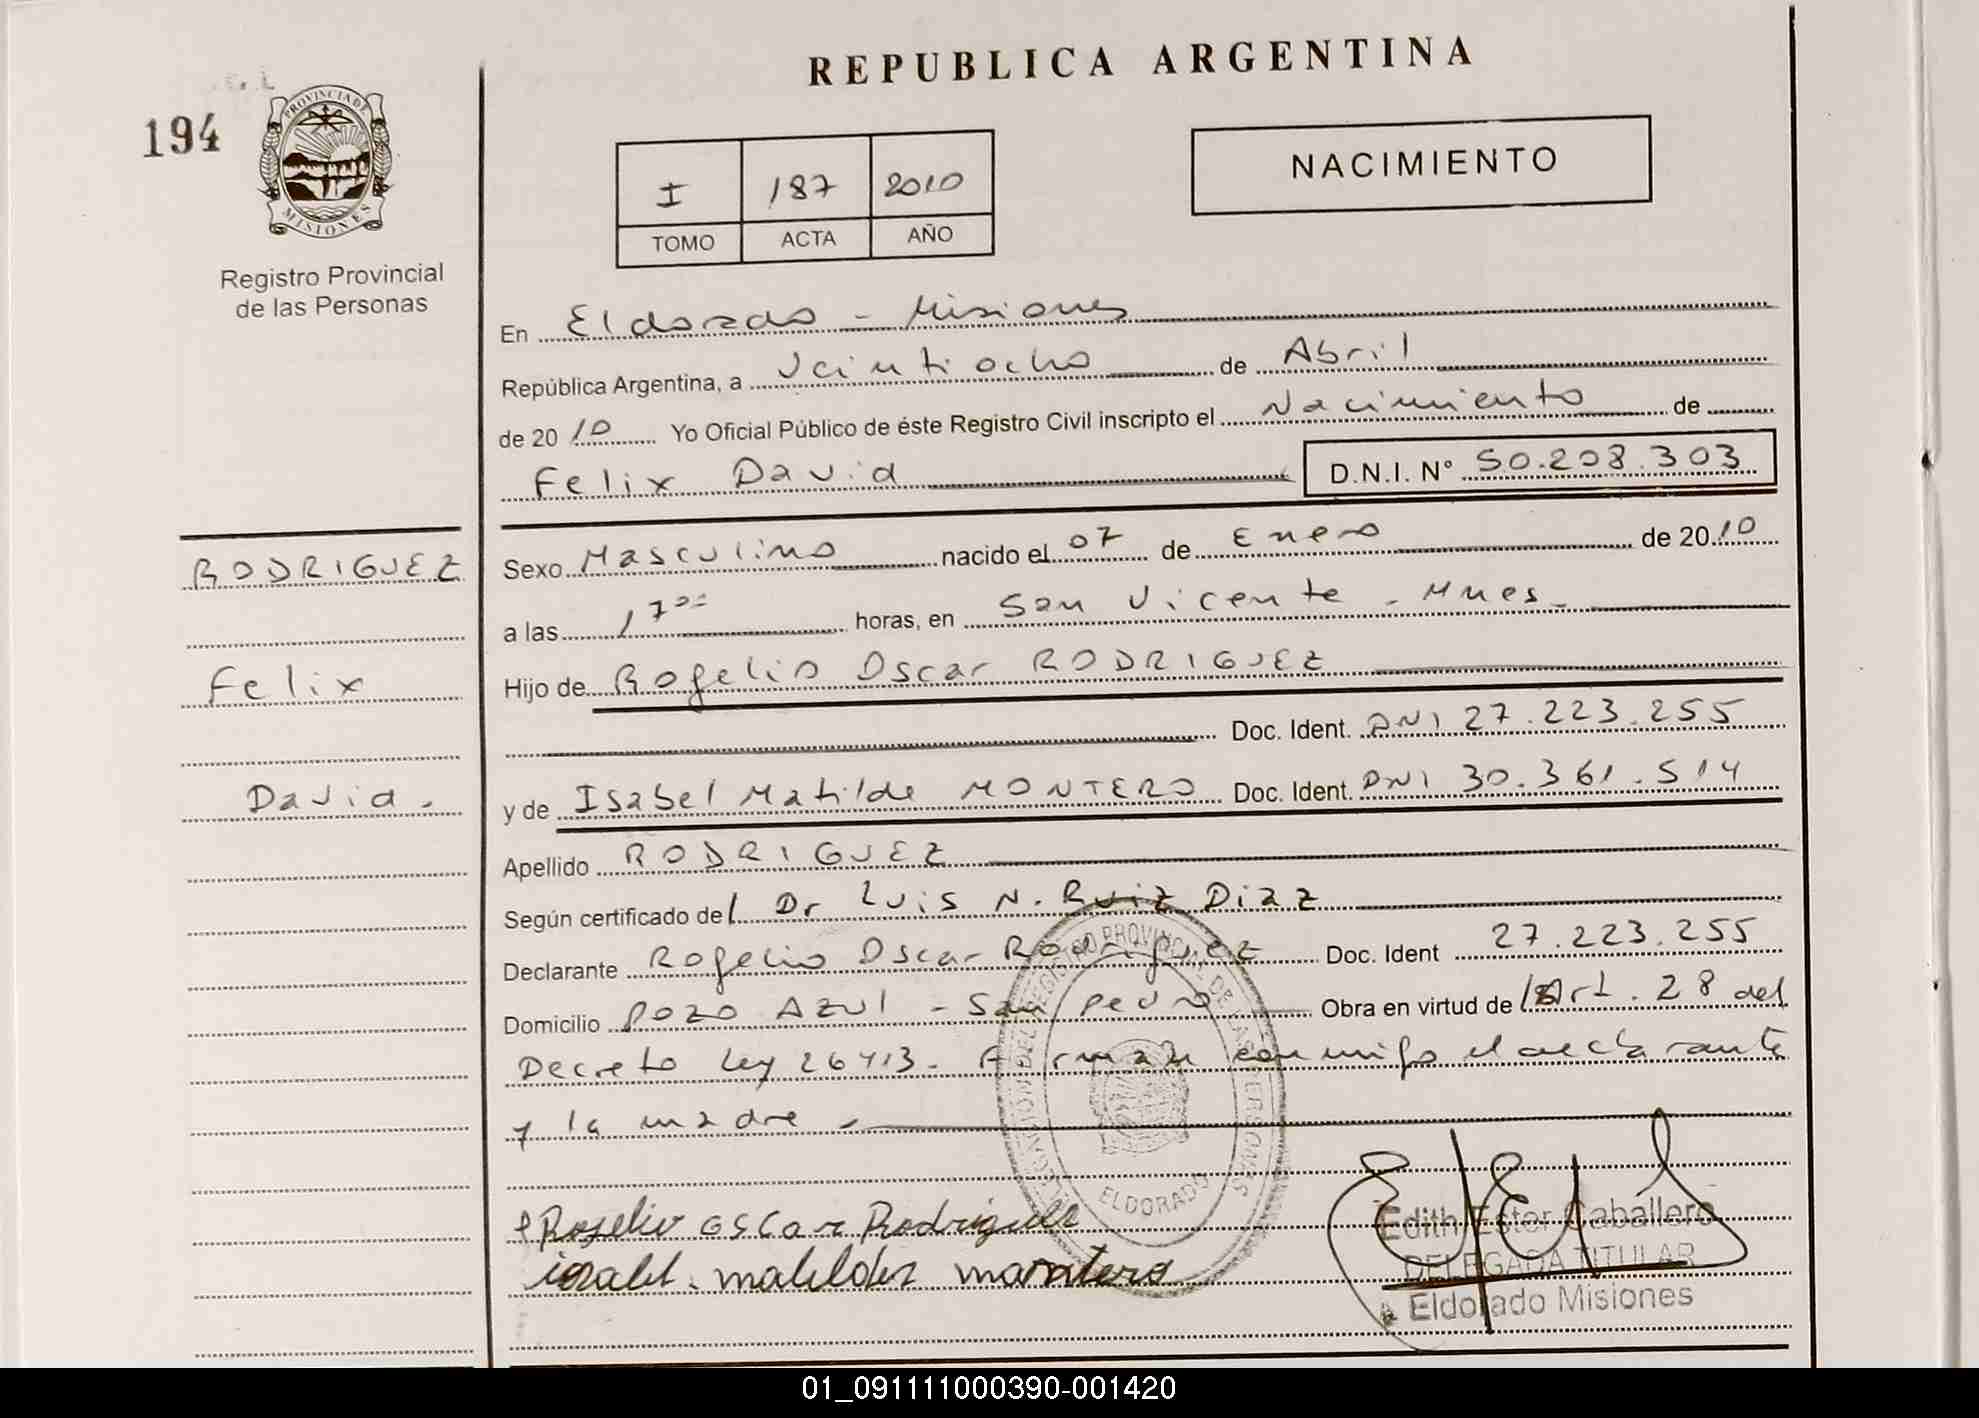 REPUBLICA ARGENTINA
194
PROVINCIA DE
MISIONES
Registro Provincial
de las Personas
I 187 2010
TOMO ACTA AÑO
NACIMIENTO
En Eldorado - Misiones
República Argentina, a Veintiocho de Abril
de 2010 Yo Oficial Público de éste Registro Civil inscripto el Nacimiento de
Felix David D.N.I. N° 50.208.303
RODRIGUEZ
Felix
David.
Sexo Masculino nacido el 07 de Enero de 2010
a las 17°° horas, en San Vicente - Mnes.
Hijo de Rogelio Oscar RODRIGUEZ
Doc. Ident. DNI 27.223.255
y de Isabel Matilde MONTERO Doc. Ident. DNI 30.361.514
Apellido RODRIGUEZ
Según certificado del Dr Luis N. Ruiz Diaz
Declarante Rogelio Oscar Rodriguez Doc. Ident 27.223.255
Domicilio Pozo AZul - San Pedro Obra en virtud de Art. 28 del
Decreto Ley 26413. Firman conmigo el declarante
y la madre
Rogelio oscar Rodriguez
isabel. matilde montero
ELDORADO
Edith Ester Caballero
DELEGADA TITULAR
Eldorado Misiones
01_091111000390-001420